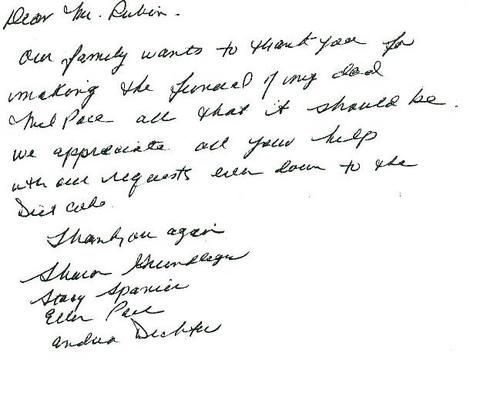 Dear Mr. Rubin.
Our family wants to thank you for
making the funeral of my dad
Mel Pace all that it should be.
we appreciate all your help
with our requests even down to the
Diet coke.
Thank you again
Sharon
Stacy Spanier
Ellen Pace
Andrea Dichter